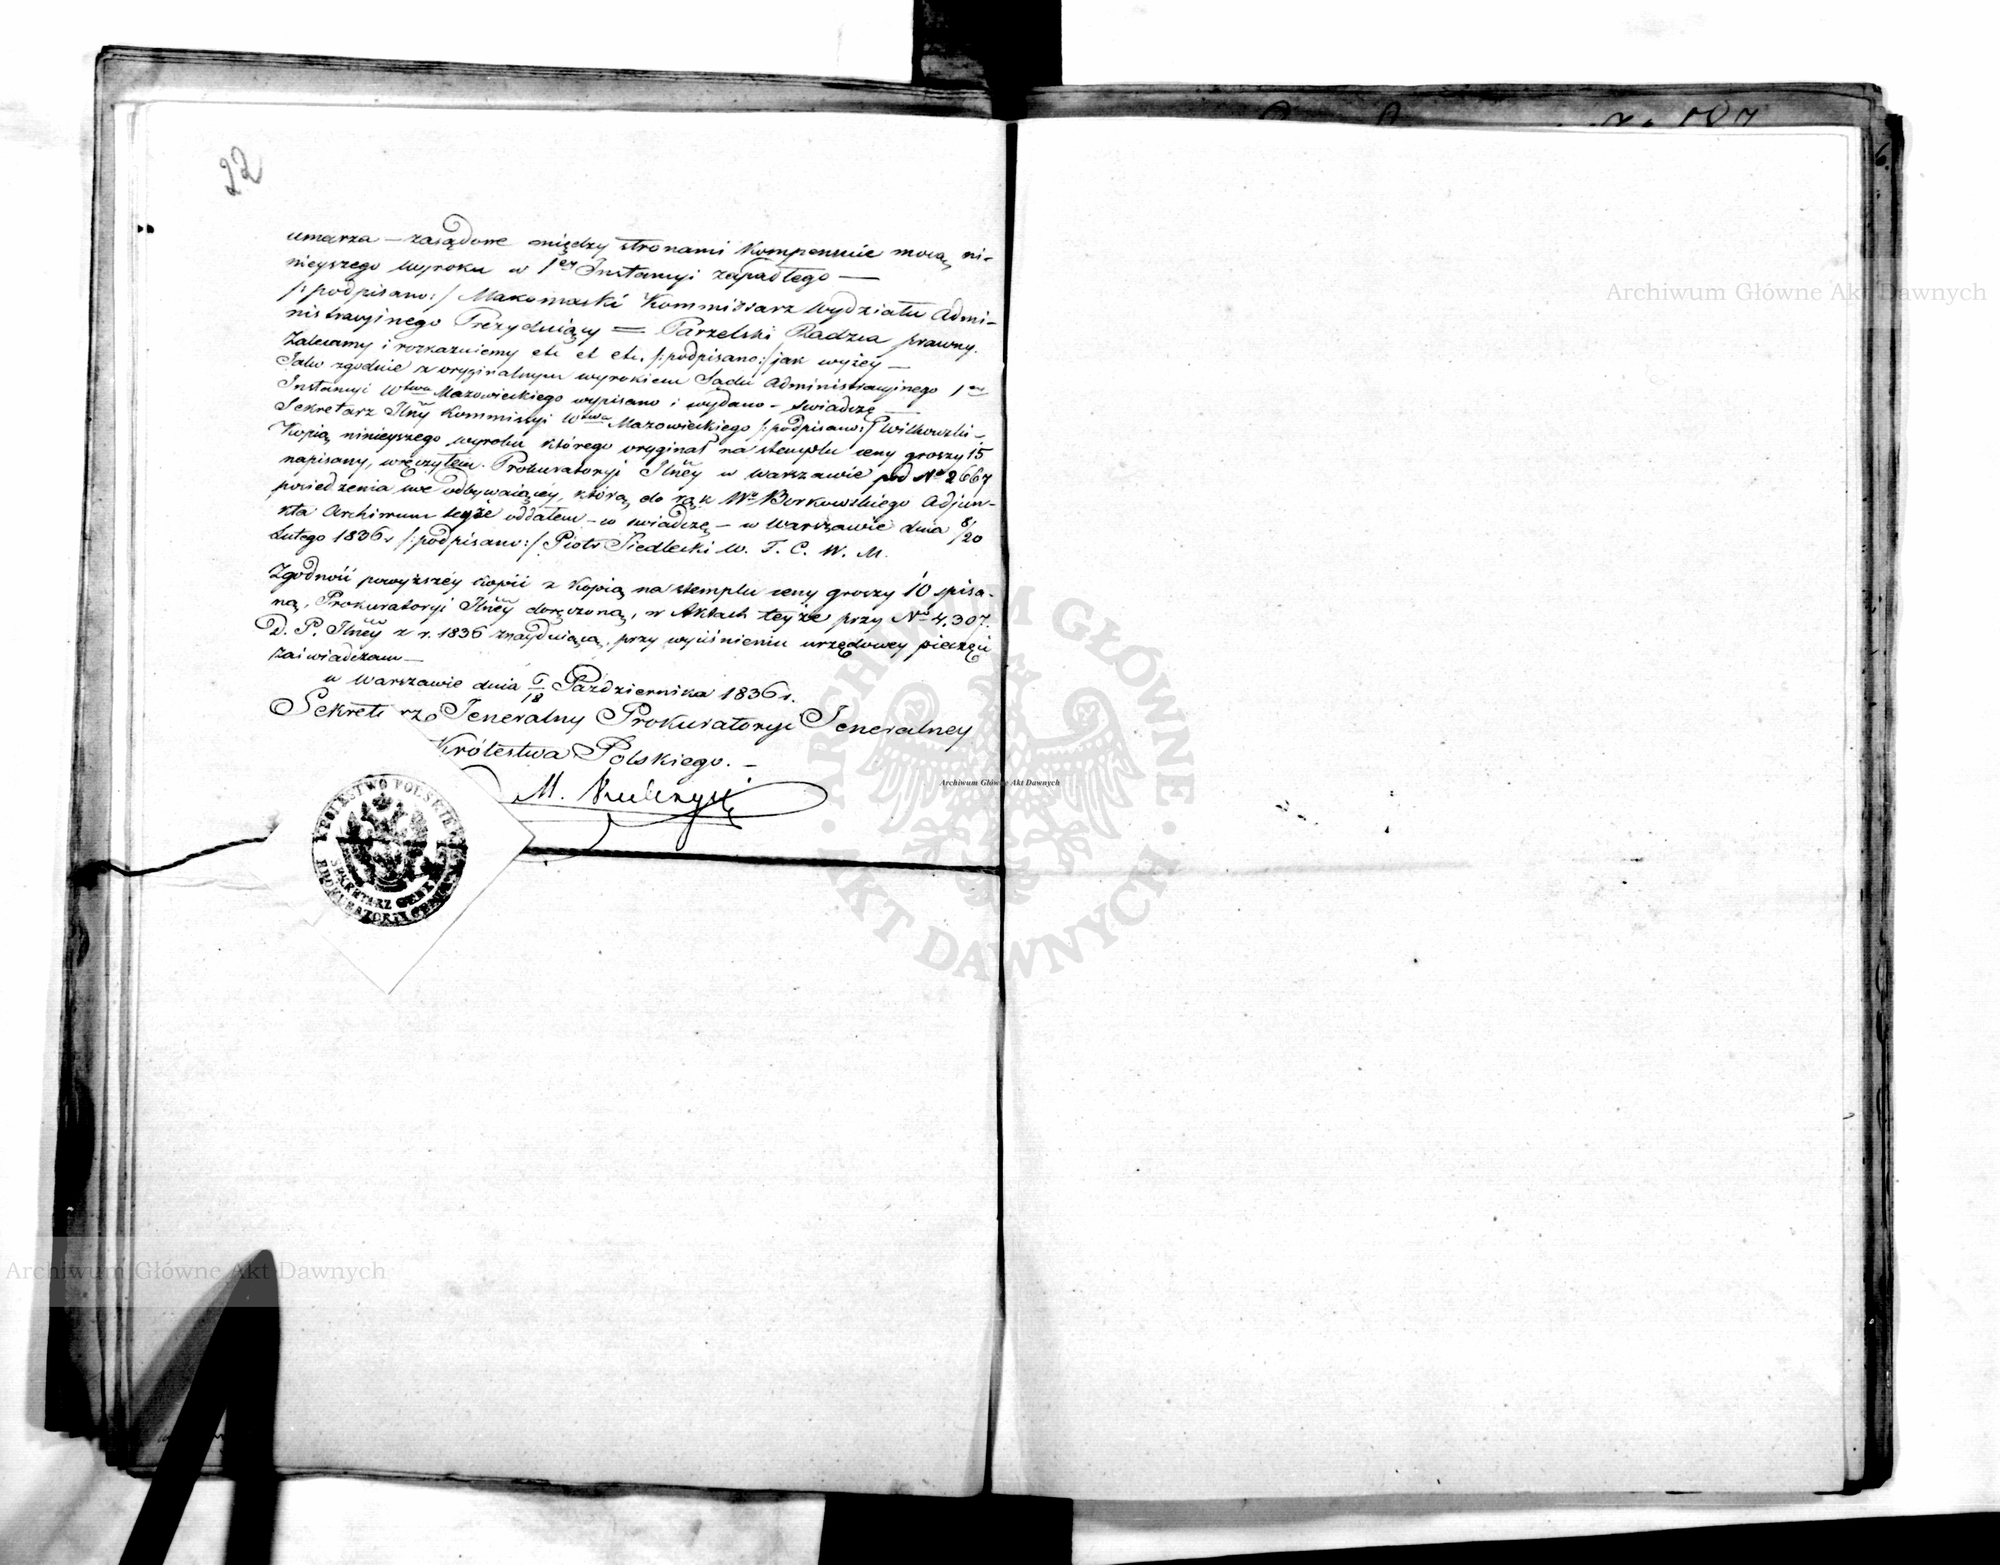 22
umarza – zasądzone między stronami kompensuie mocą ni-
nieyszego wyroku w 1ey Instancyi zapadłego —
/:podpisano:/ Makomaski Kommissarz Wydziału Admi-
nistracyinego Prezyduiący = Parzelski Radzca prawny.
Zalecamy i rozkazuiemy etc et etc. /:podpisano:/ jak wyżey —
Jako zgodnie z oryginalnym wyrokiem Sądu Administracyinego 1ey
Instancyi Wtwa Mazowieckiego wypisano i wydano – świadczę —
Sekretarz Jlny Kommissyi Wtwa Mazowieckiego /:podpisano:/ Wilkowski.
Kopią ninieyszego wyroku którego oryginał na stemplu ceny groszy 15
napisany, wręczyłem Prokuratoryi Jlney w Warszawie pod No 2667
posiedzenia swe odbywaiącey, którą do rąk Wo Borkowskiego Adjun-
kta Archiwum teyże oddałem – co świadczę – w Warszawie dnia 8/20
Lutego 1836 r /:podpisano:/ Piotr Siedlecki W. T. C. W. M.
Zgodność powyższey kopii z kopią na stemplu ceny groszy 10 spisa-
ną, Prokuratoryi Jlney doręczoną, w Aktach teyże przy No 4,307.
D. P. Jlney z r. 1836 znayduiącą, przy wyciśnieniu urzędowey pieczęci
zaświadczam —
w Warszawie dnia 6/18 Października 1836 r.
Sekretarz Jeneralny Prokuratoryi Jeneralney
Królestwa Polskiego. —
M.
KRÓLESTWO POLSKIE
SEKRETARZ GENER
PROKURATORII GENER
Archiwum Główne Akt Dawnych
Archiwum Główne Akt Dawnych
Archiwum Główne Akt Dawnych
ARCHIWUM GŁÓWNE
AKT DAWNYCH